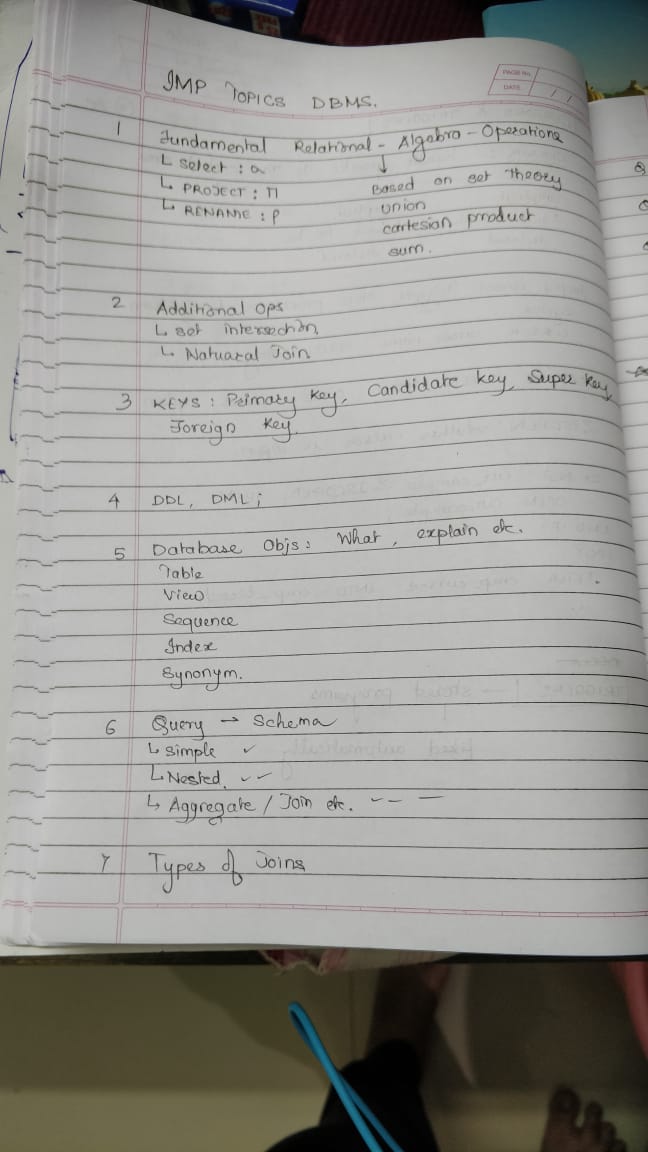 IMP TOPICS DBMS.
PAGE No.
DATE / /
1 Fundamental Relational - Algebra - Operations
↳ Select : σ ↓
↳ PROJECT : Π Based on set theory
↳ RENAME : ρ union
cartesian product
sum.
2 Additional Ops
↳ set intersection
↳ Natuaral Join
3 KEYS : Primary Key, Candidate key, Super key,
Foreign Key.
4 DDL, DML ;
5 Database Objs : What, explain etc.
Table
View
Sequence
Index
Synonym.
6 Query → Schema
↳ simple ✓
↳ Nested. ✓✓
↳ Aggregate / Join etc. — — —
7 Types of Joins